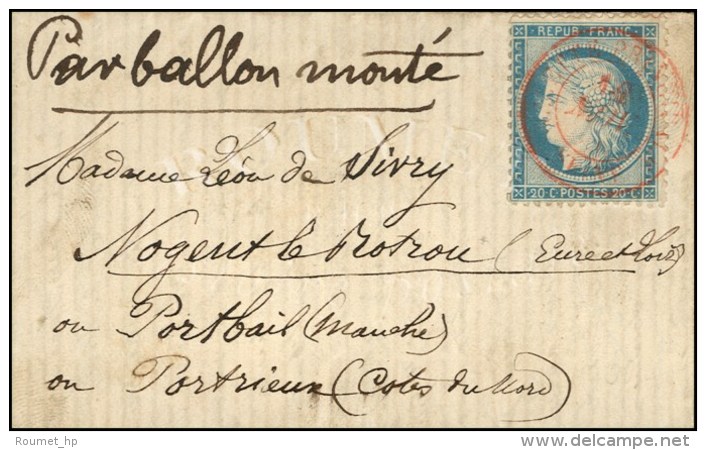 Par ballon monté
REPUB. FRANC.
20 C. POSTES 20 C.
Madame Léon de Sivry
Nogent le Rotrou (Eure et Loir)
ou Portbail (Manche)
ou Portrieux (Cotes du Nord)
Roumet_hp
delcampe.net